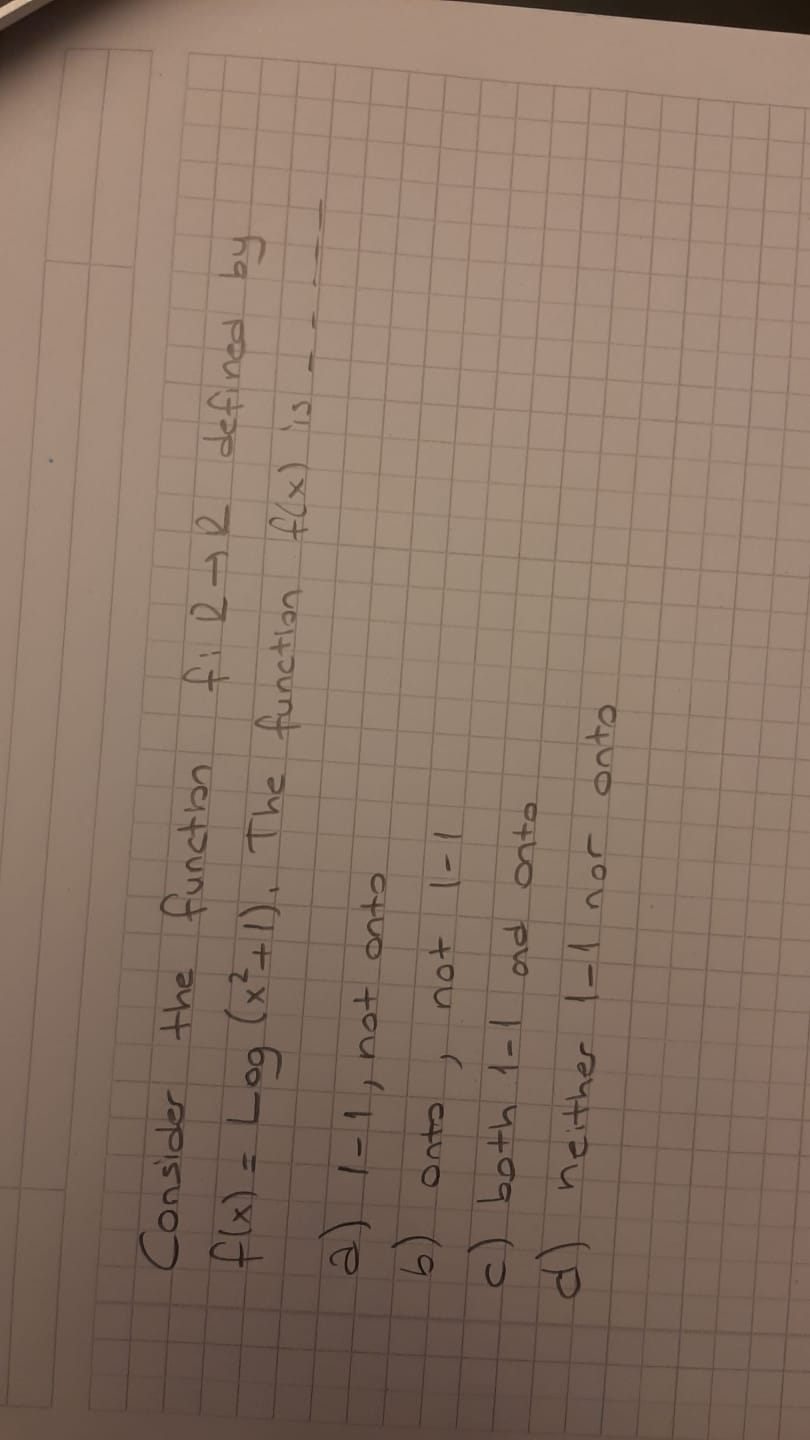 Consider the function f: R→R defined by
f(x) = Log (x²+1). The function f(x) is - - - - -
a) 1-1, not onto
b) onto, not 1-1
c) both 1-1 and onto
d) neither 1-1 nor onto